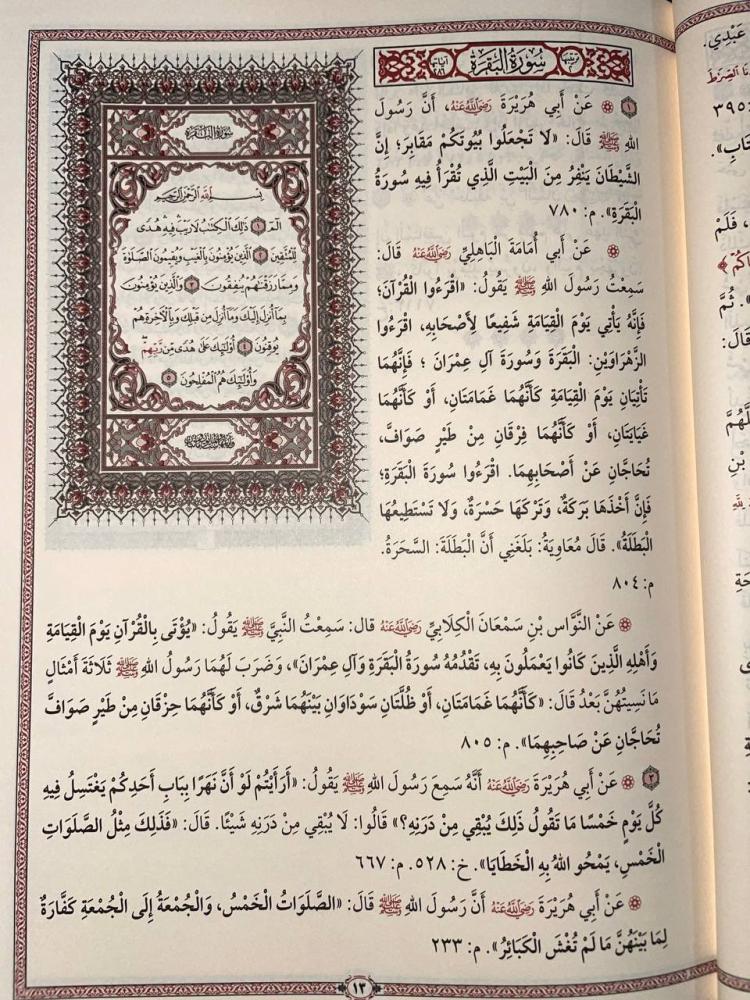 سُورَةُ البَقَرَةِ
۞ عَنْ أَبِي هُرَيْرَةَ رَضِيَ اللَّهُ عَنْهُ، أَنَّ رَسُولَ
اللهِ ﷺ قَالَ: «لَا تَجْعَلُوا بُيُوتَكُمْ مَقَابِرَ؛ إِنَّ
الشَّيْطَانَ يَنْفِرُ مِنَ الْبَيْتِ الَّذِي تُقْرَأُ فِيهِ سُورَةُ
الْبَقَرَةِ». م: ٧٨٠
۞ عَنْ أَبِي أُمَامَةَ الْبَاهِلِيِّ رَضِيَ اللَّهُ عَنْهُ قَالَ:
سَمِعْتُ رَسُولَ اللهِ ﷺ يَقُولُ: «اقْرَءُوا الْقُرْآنَ؛
فَإِنَّهُ يَأْتِي يَوْمَ الْقِيَامَةِ شَفِيعًا لِأَصْحَابِهِ، اقْرَءُوا
الزَّهْرَاوَيْنِ: الْبَقَرَةَ وَسُورَةَ آلِ عِمْرَانَ ؛ فَإِنَّهُمَا
تَأْتِيَانِ يَوْمَ الْقِيَامَةِ كَأَنَّهُمَا غَمَامَتَانِ، أَوْ كَأَنَّهُمَا
غَيَايَتَانِ، أَوْ كَأَنَّهُمَا فِرْقَانِ مِنْ طَيْرٍ صَوَافَّ،
تُحَاجَّانِ عَنْ أَصْحَابِهِمَا. اقْرَءُوا سُورَةَ الْبَقَرَةِ؛
فَإِنَّ أَخْذَهَا بَرَكَةٌ، وَتَرْكَهَا حَسْرَةٌ، وَلَا تَسْتَطِيعُهَا
الْبَطَلَةُ». قَالَ مُعَاوِيَةُ: بَلَغَنِي أَنَّ الْبَطَلَةَ: السَّحَرَةُ.
م: ٨٠٤
سُورَةُ البَقَرَةِ
بِسْمِ اللَّهِ الرَّحْمَٰنِ الرَّحِيمِ
الم ۝١ ذَٰلِكَ الْكِتَابُ لَا رَيْبَ ۛ فِيهِ ۛ هُدًى
لِّلْمُتَّقِينَ ۝٢ الَّذِينَ يُؤْمِنُونَ بِالْغَيْبِ وَيُقِيمُونَ الصَّلَوٰةَ
وَمِمَّا رَزَقْنَاهُمْ يُنفِقُونَ ۝٣ وَالَّذِينَ يُؤْمِنُونَ
بِمَا أُنزِلَ إِلَيْكَ وَمَا أُنزِلَ مِن قَبْلِكَ وَبِالْآخِرَةِ هُمْ
يُوقِنُونَ ۝٤ أُولَٰئِكَ عَلَىٰ هُدًى مِّن رَّبِّهِمْ ۖ
وَأُولَٰئِكَ هُمُ الْمُفْلِحُونَ ۝٥
۞ عَنْ النَّوَّاسِ بْنِ سَمْعَانَ الْكِلَابِيِّ رَضِيَ اللَّهُ عَنْهُ قال: سَمِعْتُ النَّبِيَّ ﷺ يَقُولُ: «يُؤْتَى بِالْقُرْآنِ يَوْمَ الْقِيَامَةِ
وَأَهْلِهِ الَّذِينَ كَانُوا يَعْمَلُونَ بِهِ، تَقْدُمُهُ سُورَةُ الْبَقَرَةِ وَآلِ عِمْرَانَ»، وَضَرَبَ لَهُمَا رَسُولُ اللهِ ﷺ ثَلَاثَةَ أَمْثَالٍ
مَا نَسِيتُهُنَّ بَعْدُ قَالَ: «كَأَنَّهُمَا غَمَامَتَانِ، أَوْ ظُلَّتَانِ سَوْدَاوَانِ بَيْنَهُمَا شَرْقٌ، أَوْ كَأَنَّهُمَا حِزْقَانِ مِنْ طَيْرٍ صَوَافَّ
تُحَاجَّانِ عَنْ صَاحِبِهِمَا». م: ٨٠٥
۞ عَنْ أَبِي هُرَيْرَةَ رَضِيَ اللَّهُ عَنْهُ أَنَّهُ سَمِعَ رَسُولَ اللهِ ﷺ يَقُولُ: «أَرَأَيْتُمْ لَوْ أَنَّ نَهَرًا بِبَابِ أَحَدِكُمْ يَغْتَسِلُ فِيهِ
كُلَّ يَوْمٍ خَمْسًا مَا تَقُولُ ذَلِكَ يُبْقِي مِنْ دَرَنِهِ؟» قَالُوا: لَا يُبْقِي مِنْ دَرَنِهِ شَيْئًا. قَالَ: «فَذَلِكَ مِثْلُ الصَّلَوَاتِ
الْخَمْسِ، يَمْحُو اللهُ بِهِ الْخَطَايَا». خ: ٥٢٨. م: ٦٦٧
۞ عَنْ أَبِي هُرَيْرَةَ رَضِيَ اللَّهُ عَنْهُ أَنَّ رَسُولَ اللهِ ﷺ قَالَ: «الصَّلَوَاتُ الْخَمْسُ، وَالْجُمْعَةُ إِلَى الْجُمْعَةِ كَفَّارَةٌ
لِمَا بَيْنَهُنَّ مَا لَمْ تُغْشَ الْكَبَائِرُ». م: ٢٣٣
١٣
عَبْدِي.
٣٩٥